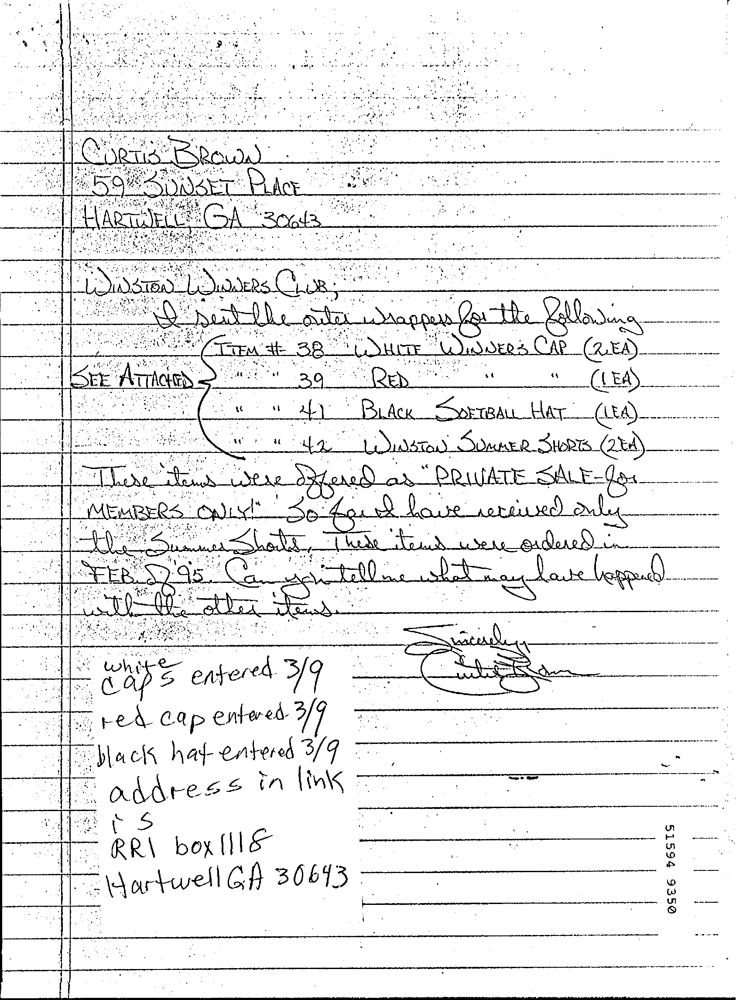 CURTIS BROWN
59 SUNSET PLACE
HARTWELL, GA 30643
WINSTON WINNERS CLUB,
I sent the outer wrappers for the following
ITEM # 38 WHITE WINNER'S CAP (2 EA)
SEE ATTACHED " " 39 RED " " (1 EA)
" " 41 BLACK SOFTBALL HAT (1 EA)
" " 42 WINSTON SUMMER SHORTS (2 EA)
These items were offered as "PRIVATE SALE-for
MEMBERS ONLY!" So far I have received only
the Summer Shorts. These items were ordered in
FEB of 95. Can you tell me what may have happened
with the other items.
Sincerely,
Curtis Brown
white
caps entered 3/9
red cap entered 3/9
black hat entered 3/9
address in link
is
RR1 box 1118
Hartwell GA 30643
51594 9350